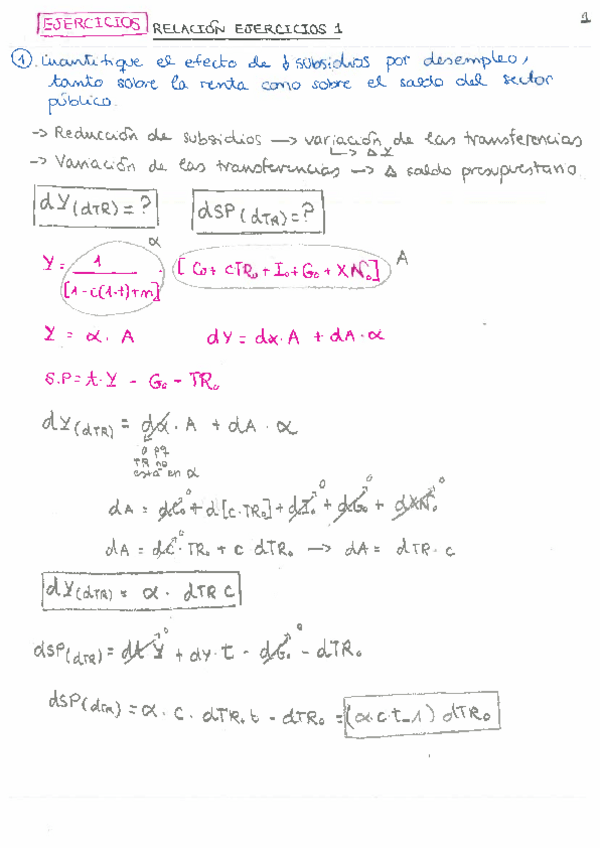 1
EJERCICIOS RELACIÓN EJERCICIOS 1
1. Cuantifique el efecto de ↓ subsidios por desempleo,
tanto sobre la renta como sobre el saldo del sector
público.
-> Reducción de subsidios -> variación de las transferencias
↳ Δ Y
-> Variación de las transferencias -> Δ saldo presupuestario
dY(dTR) = ? dSP(dTR) = ?
α
Y = 1 / [1-c(1-t)+m] · [C₀ + cTR₀ + I₀ + G₀ + XN₀] A
Y = α · A dY = dα · A + dA · α
S.P = t · Y - G₀ - TR₀
dY(dTR) = dα · A + dA · α
0 pq
TR no
está en α
0 0 0 0
dA = dC₀ + d[c·TR₀] + dI₀ + dG₀ + dXN₀
0
dA = dC · TR₀ + c dTR₀ -> dA = dTR · c
dY(dTR) = α · dTR c
0 0
dSP(dTR) = dt Y + dy · t - dG₀ - dTR₀
dSP(dTR) = α · c · dTR₀ t - dTR₀ = (α·c·t-1) dTR₀